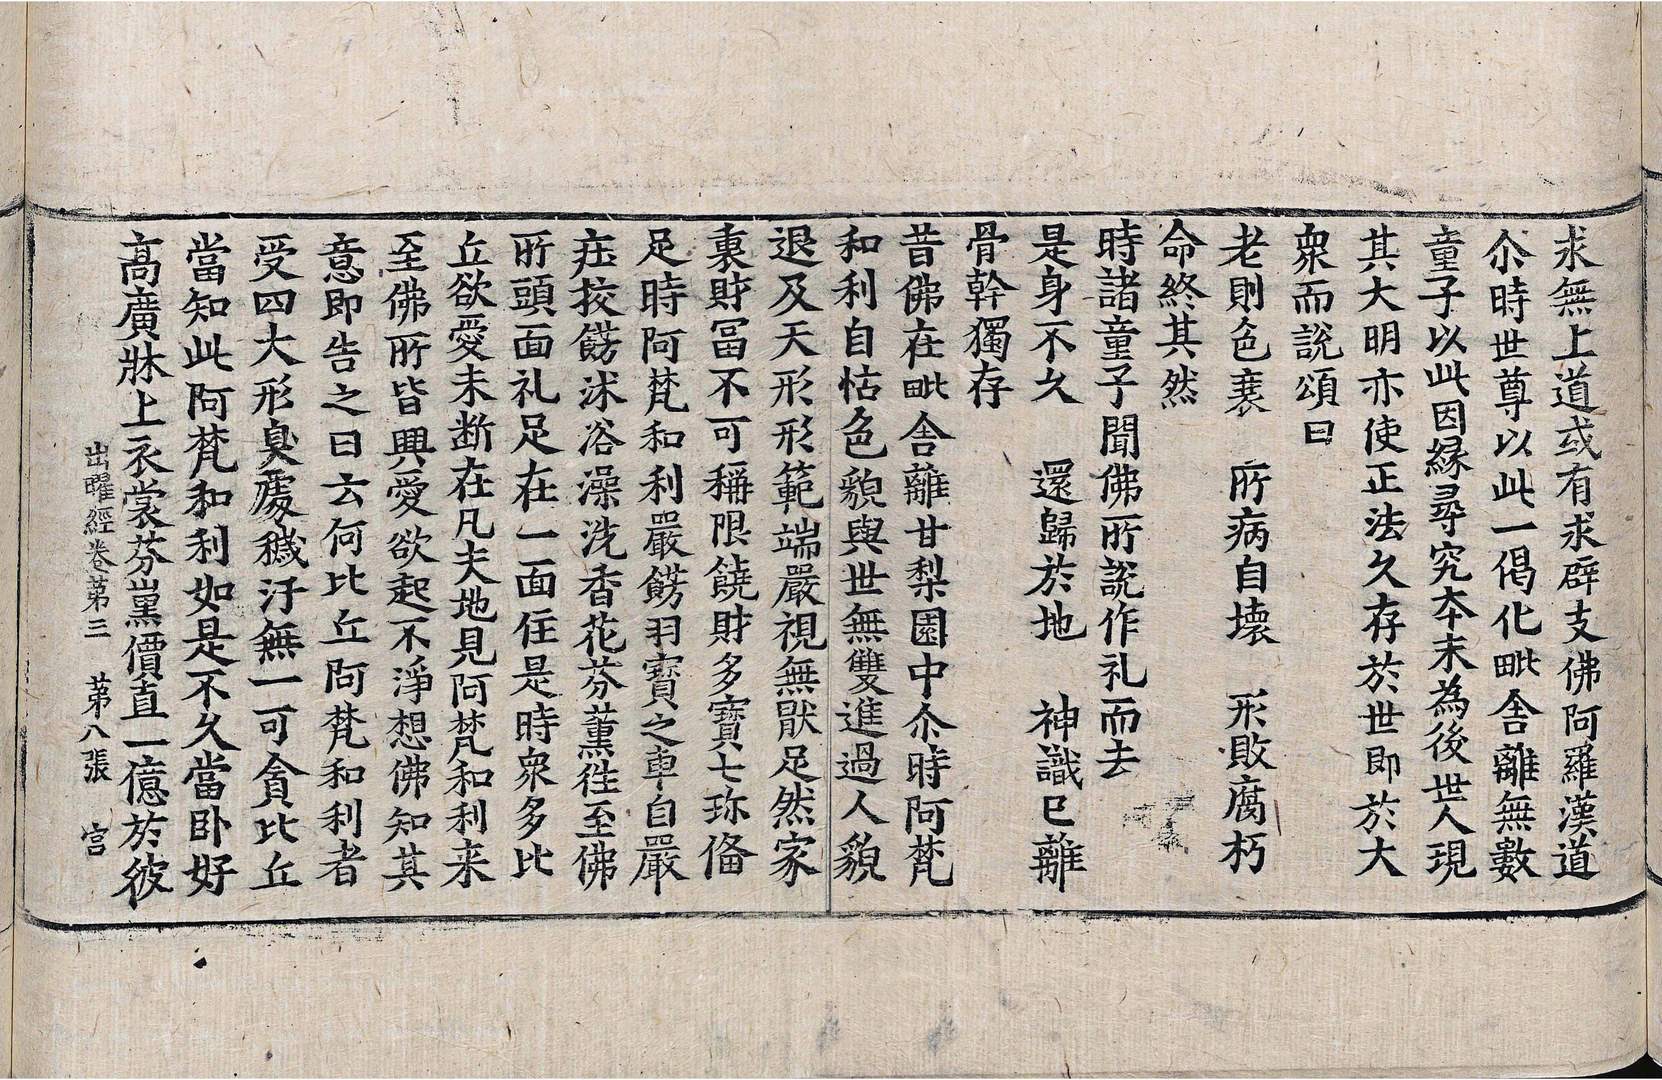 求無上道或有求辟支佛阿羅漢道
尒時世尊以此一偈化毗舍離無數
童子以此因縁尋究本末為後世人現
其大明亦使正法久存於世即於大
衆而說頌曰
老則色衰　所病自壞　形敗腐朽
命終其然
時諸童子聞佛所說作礼而去
是身不久　還歸於地　神識已離
骨幹獨存
昔佛在毗舍離甘梨園中尒時阿梵
和利自怙色貌與世無雙進過人貌
退及天形形範端嚴視無猒足然家
裏財冨不可稱限饒財多寶七珎俻
足時阿梵和利嚴餝羽寶之車自嚴
莊挍餝沐浴澡洗香花芬薫徃至佛
所頭面礼足在一面住是時衆多比
丘欲愛未断在凡夫地見阿梵和利来
至佛所皆興愛欲起不淨想佛知其
意即告之曰云何比丘阿梵和利者
受四大形臭處穢汙無一可貪比丘
當知此阿梵和利如是不久當卧好
髙廣牀上衣裳芬薫價直一億於彼
出曜經卷苐三　苐八張　宫